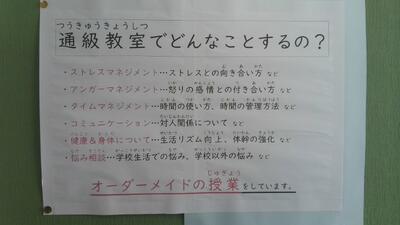 つうきゅうきょうしつ
通級教室でどんなことするの？
・ストレスマネジメント…ストレスとの向き合い方 など
・アンガーマネジメント…怒りの感情との付き合い方 など
・タイムマネジメント…時間の使い方、時間の管理方法 など
・コミュニケーション…対人関係について など
・健康＆身体について…生活リズム向上、体幹の強化 など
・悩み相談…学校生活での悩み、学校以外の悩み など
じゅぎょう
オーダーメイドの授業をしています。